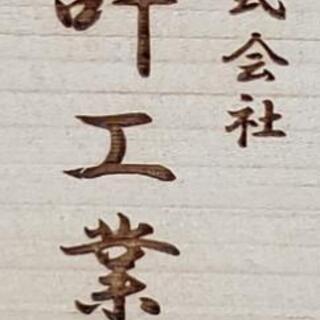 式会社
工業